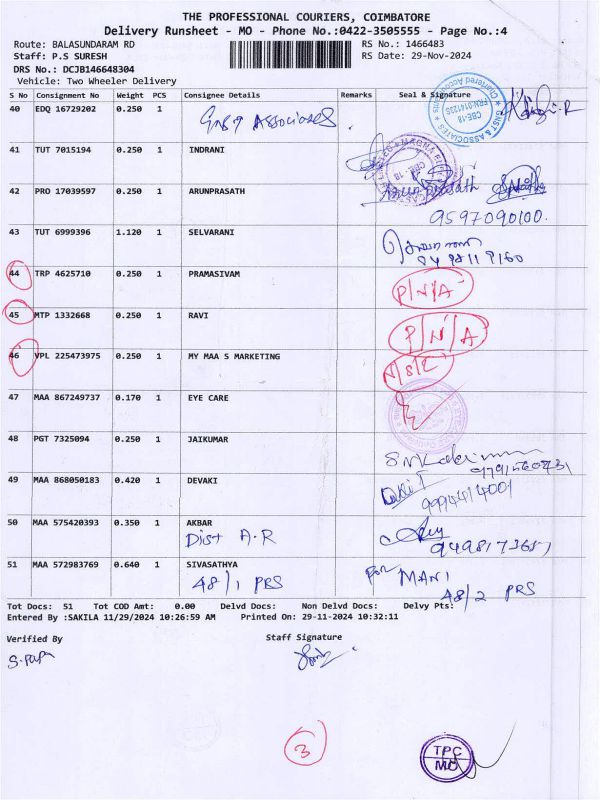 THE PROFESSIONAL COURIERS, COIMBATORE
Delivery Runsheet - MO - Phone No.:0422-3505555 - Page No.:4
Route: BALASUNDARAM RD RS No.: 1466483
Staff: P.S SURESH RS Date: 29-Nov-2024
DRS No.: DCJB146648304
Vehicle: Two Wheeler Delivery
S No Consignment No Weight PCS Consignee Details Remarks Seal & Signature
40 EDQ 16729202 0.250 1 GNST Associates
GNST & ASSOCIATES
Chartered Accountants
CBE-18
41 TUT 7015194 0.250 1 INDRANI
CBE. 18
42 PRO 17039597 0.250 1 ARUNPRASATH Arun Prasath
9597090100.
43 TUT 6999396 1.120 1 SELVARANI
44 TRP 4625710 0.250 1 PRAMASIVAM P/N/A
45 MTP 1332668 0.250 1 RAVI P/N/A
46 VPL 225473975 0.250 1 MY MAA S MARKETING N/S/C
47 MAA 867249737 0.170 1 EYE CARE
48 PGT 7325094 0.250 1 JAIKUMAR
49 MAA 868050183 0.420 1 DEVAKI
50 MAA 575420393 0.350 1 AKBAR
Dist A.R
51 MAA 572983769 0.640 1 SIVASATHYA for MANI
48/1 PRS 48/2 PRS
Tot Docs: 51 Tot COD Amt: 0.00 Delvd Docs: Non Delvd Docs: Delvy Pts:
Entered By :SAKILA 11/29/2024 10:26:59 AM Printed On: 29-11-2024 10:32:11
Verified By Staff Signature
3
TPC
MO